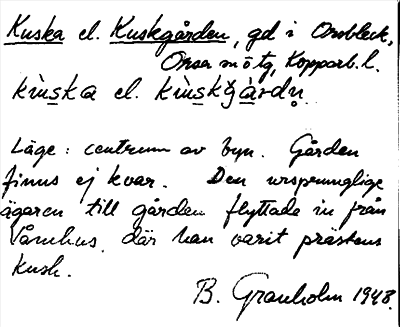 Kuska el. Kuskgården, gd i Orsbleck,
Orsa sn o tg, Kopparb. l.
kùska el. kùskgàrdn.
Läge: centrum av byn. Gården
finns ej kvar. Den ursprunglige
ägaren till gården flyttade in från
Våmhus, där han varit prästens
kusk.
B. Granholm 1948.